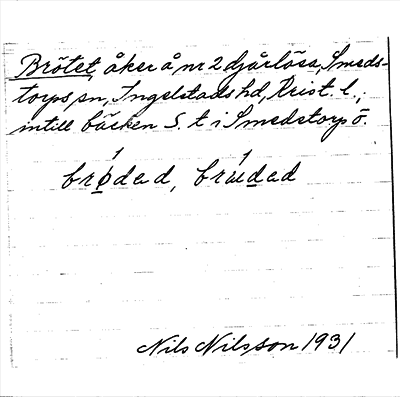 Brötet, åker å nr 2 Djårlösa, Smeds-
torps sn, Ingelstads hd, Krist. l.,
intill bäcken S. t i Smedstorp ö.
brødad, bræudad
Nils Nilsson 1931